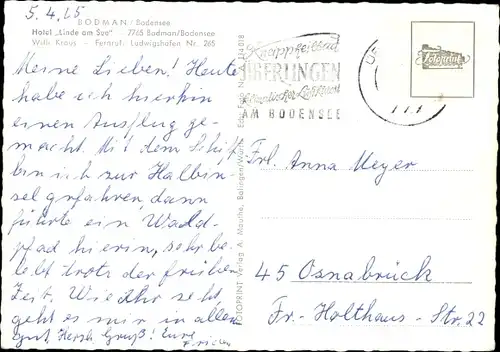 5.4.65
BODMAN / Bodensee
Hotel „Linde am See" 7765 Bodman/Bodensee
Willi Kraus - Fernruf: Ludwigshafen Nr. 265
Meine Lieben! Heute
habe ich hierhin
einen Ausflug ge-
macht. Mit dem Schiff
bin ich zur Halbin-
sel gefahren, dann
führte ein Wald-
pfad hierin, sehr be-
lebt trotz der frühen
Zeit. Wie Ihr seht,
geht es mir in allem
gut. Herzl. Gruß! Eure
FOTOPRINT Verlag A. Mauthe, Balingen/Württ.
Kneippheilbad
ÜBERLINGEN
AM BODENSEE
Fotoprint
Frl. Anna Meyer
45 Osnabrück
Fr.-Holthaus-Str. 22